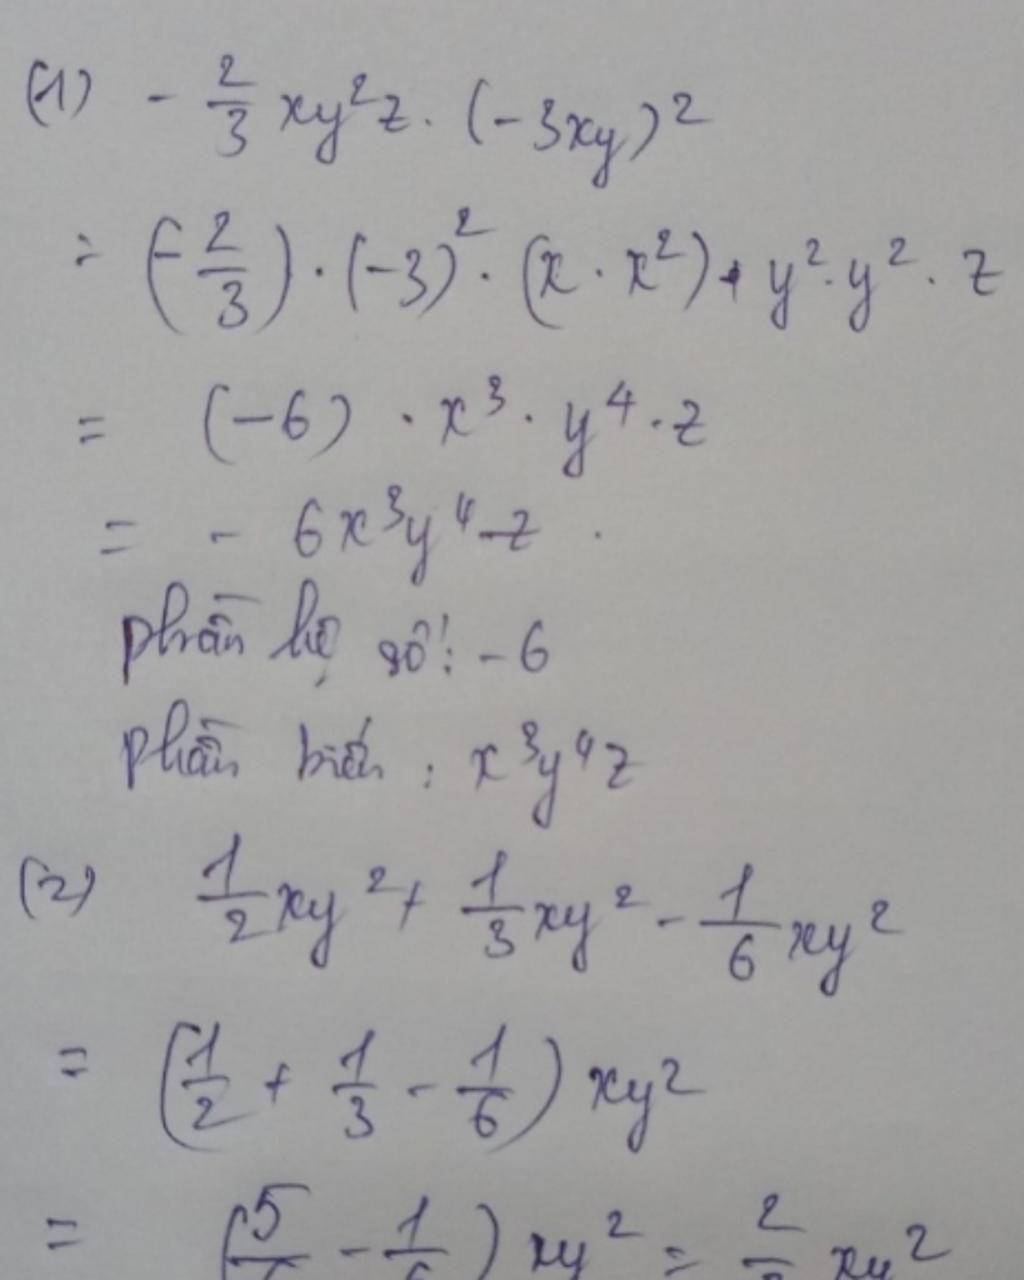 (1) - 2/3 xy²z . (-3xy)²
= (-2/3) . (-3)² . (x . x²) . y² . y² . z
= (-6) . x³ . y⁴ . z
= - 6x³y⁴z .
phần hệ số : -6
phần biến : x³y⁴z
(2) 1/2 xy² + 1/3 xy² - 1/6 xy²
= (1/2 + 1/3 - 1/6) xy²
= (5/6 - 1/6) xy² = 2/3 xy²